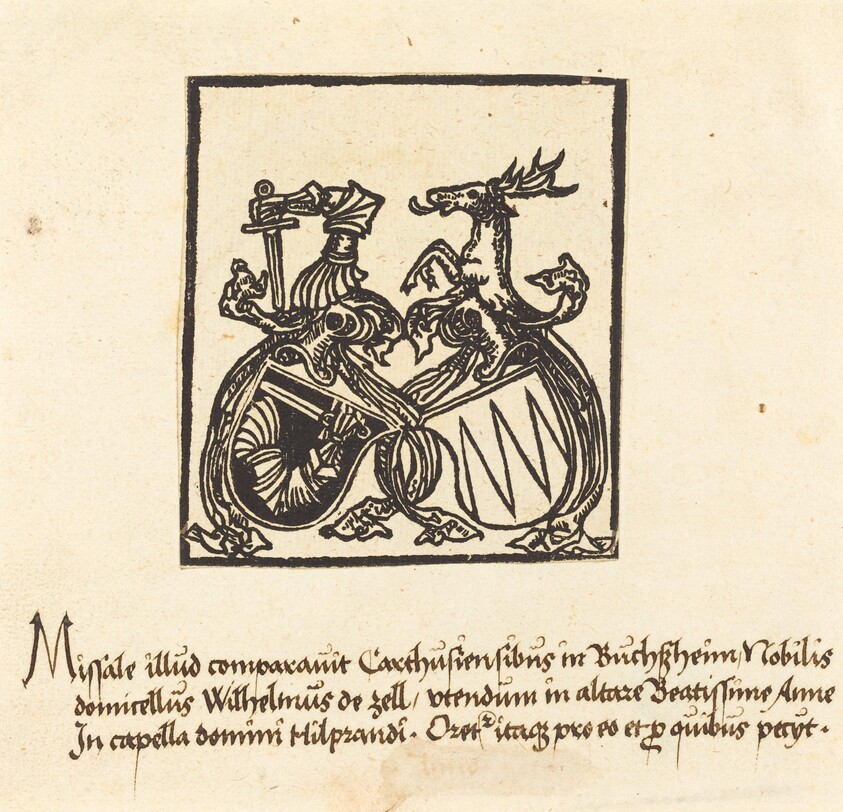 Missale illud comparauit Carthusiensibus in Buchßheim, Nobilis
domicellus Wilhelmus de zell, vtendum in altare Beatissime Anne
In capella domini Hilprandi. Oretr itaqꝫ pro eo et ꝓ quibus petyt.